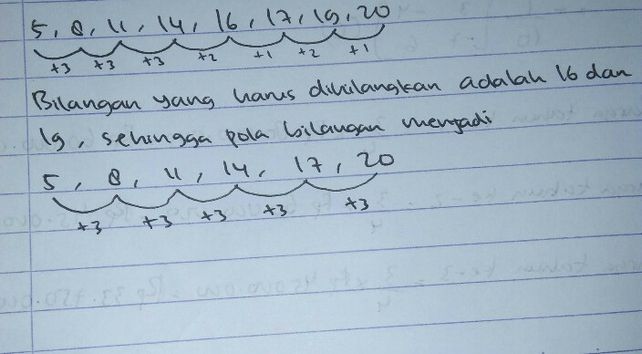 5, 8, 11, 14, 16, 17, 19, 20
+3 +3 +3 +2 +1 +2 +1
Bilangan yang harus dihilangkan adalah 16 dan
19, sehingga pola bilangan menjadi
5, 8, 11, 14, 17, 20
+3 +3 +3 +3 +3